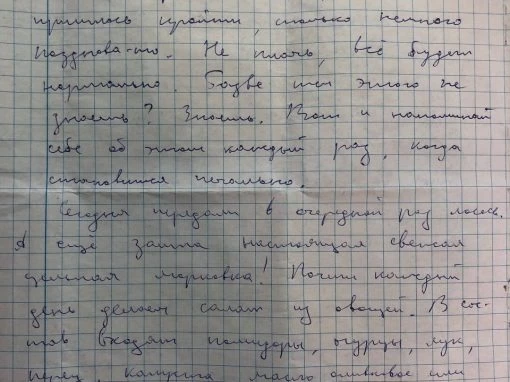 пришлось пройти, столько немного
поздновато. Не плачь, всё будет
нормально. Разве ты этого не
знаешь? Знаешь. Вот и напоминай
себе об этом каждый раз, когда
становится печально.
Сегодня передали в очередной раз лосось.
А ещё зашла настоящая свежая
цельная морковка! Почти каждый
день делаем салат из овощей. В сос-
тав входят помидоры, огурцы, лук,
перец, капуста масло оливковое или